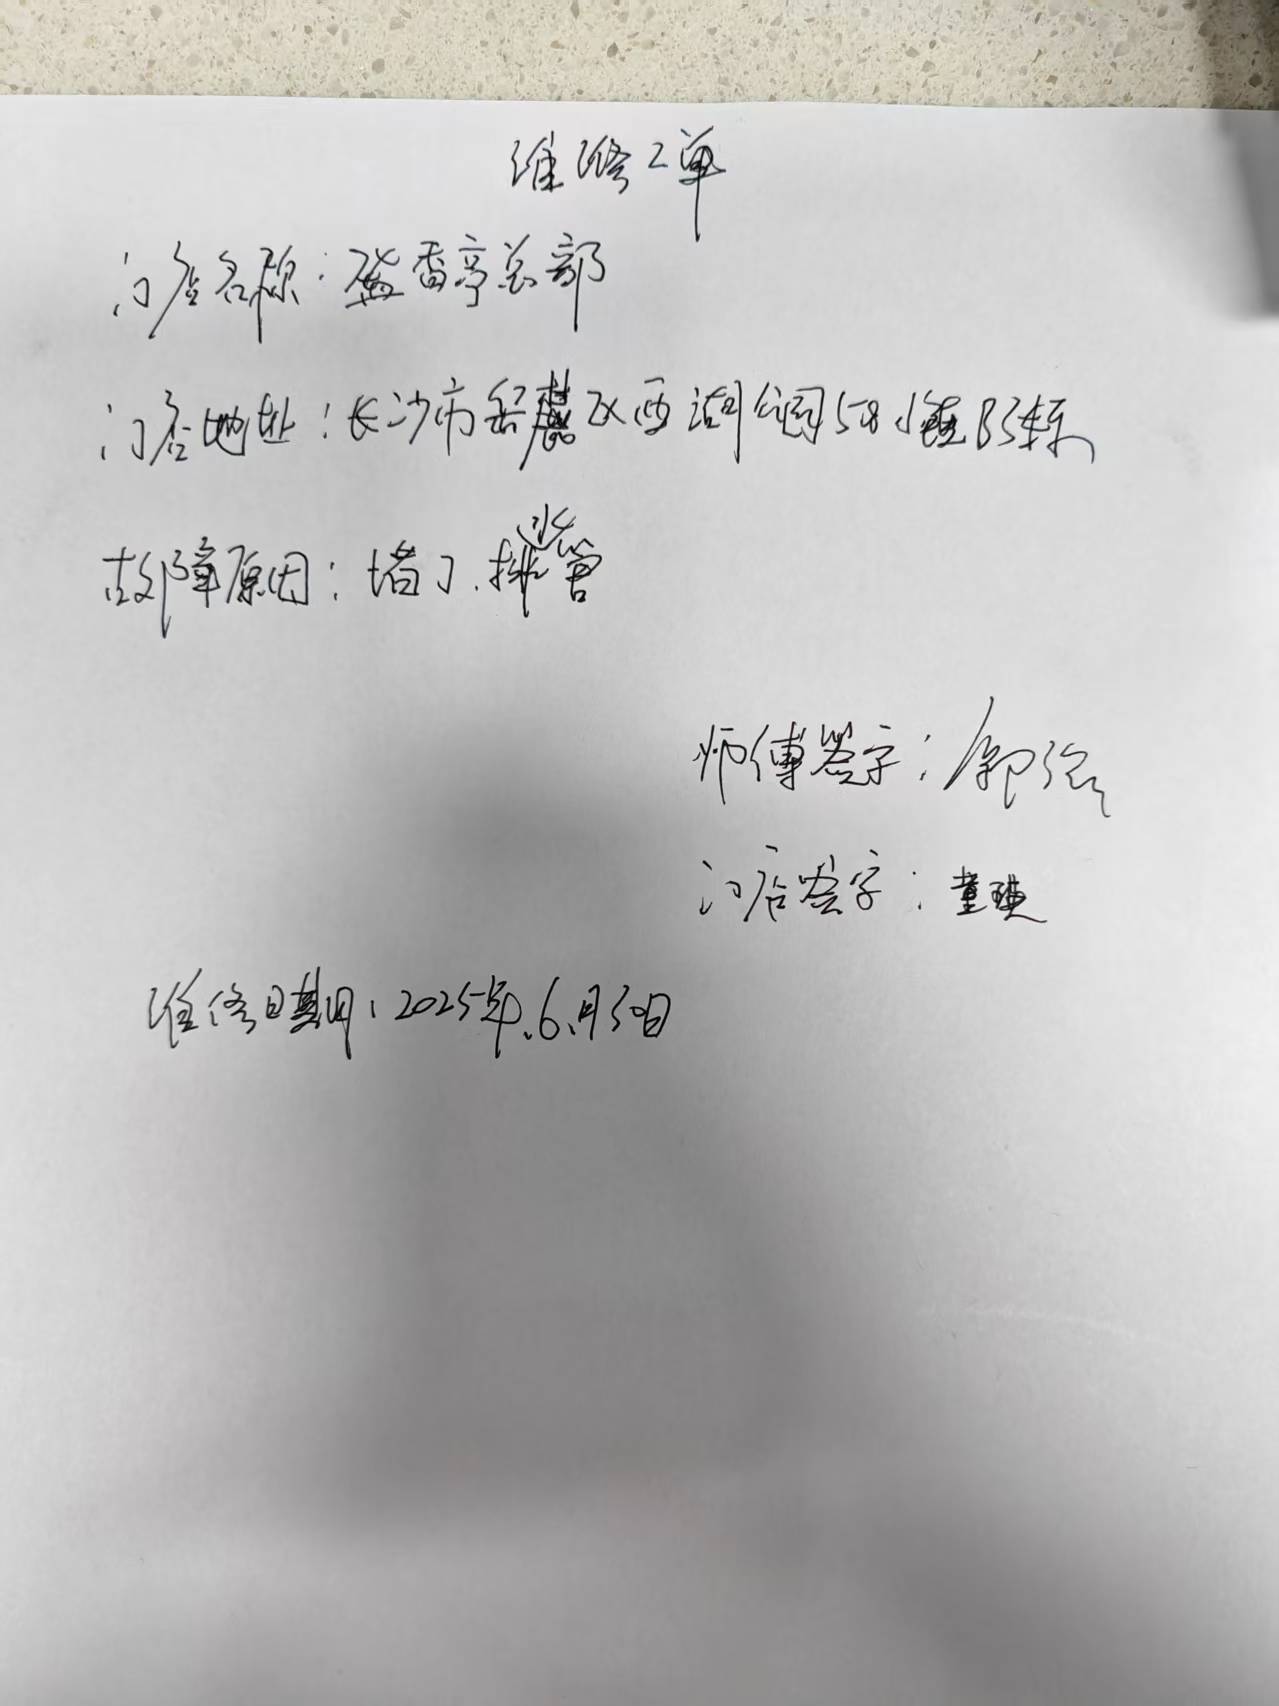 维修工单
门店名称：盛香亭总部
门店地址：长沙市岳麓区西湖公园58小镇B3栋
故障原因：堵了.排水管
师傅签字：郭
门店签字：童瑛
维修日期：2025年.6.月30日